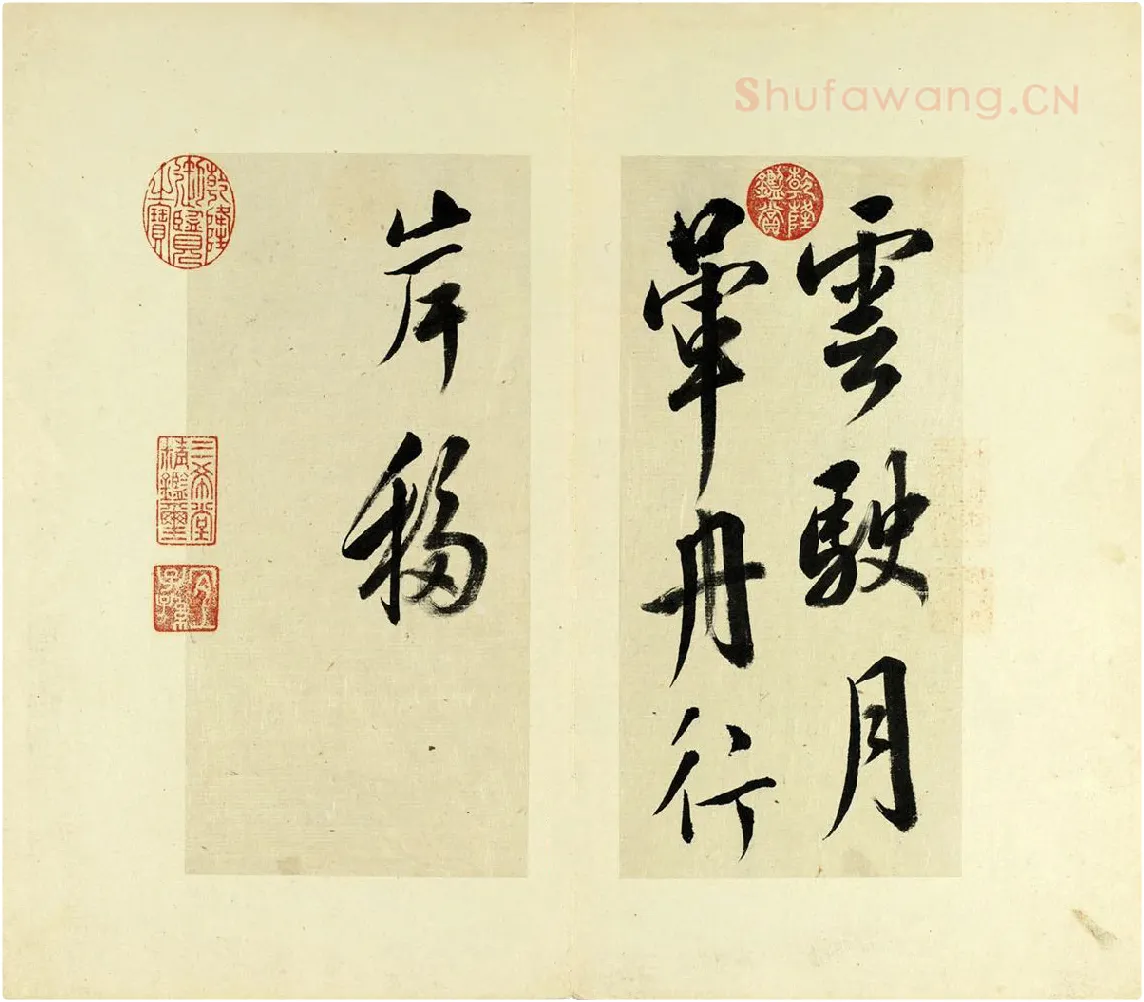 Shufawang.CN
雲駛月
乾隆
鑑賞
暈舟行
岸移
乾隆
御覽
之寶
三希堂
精鑑璽
宜
子孫